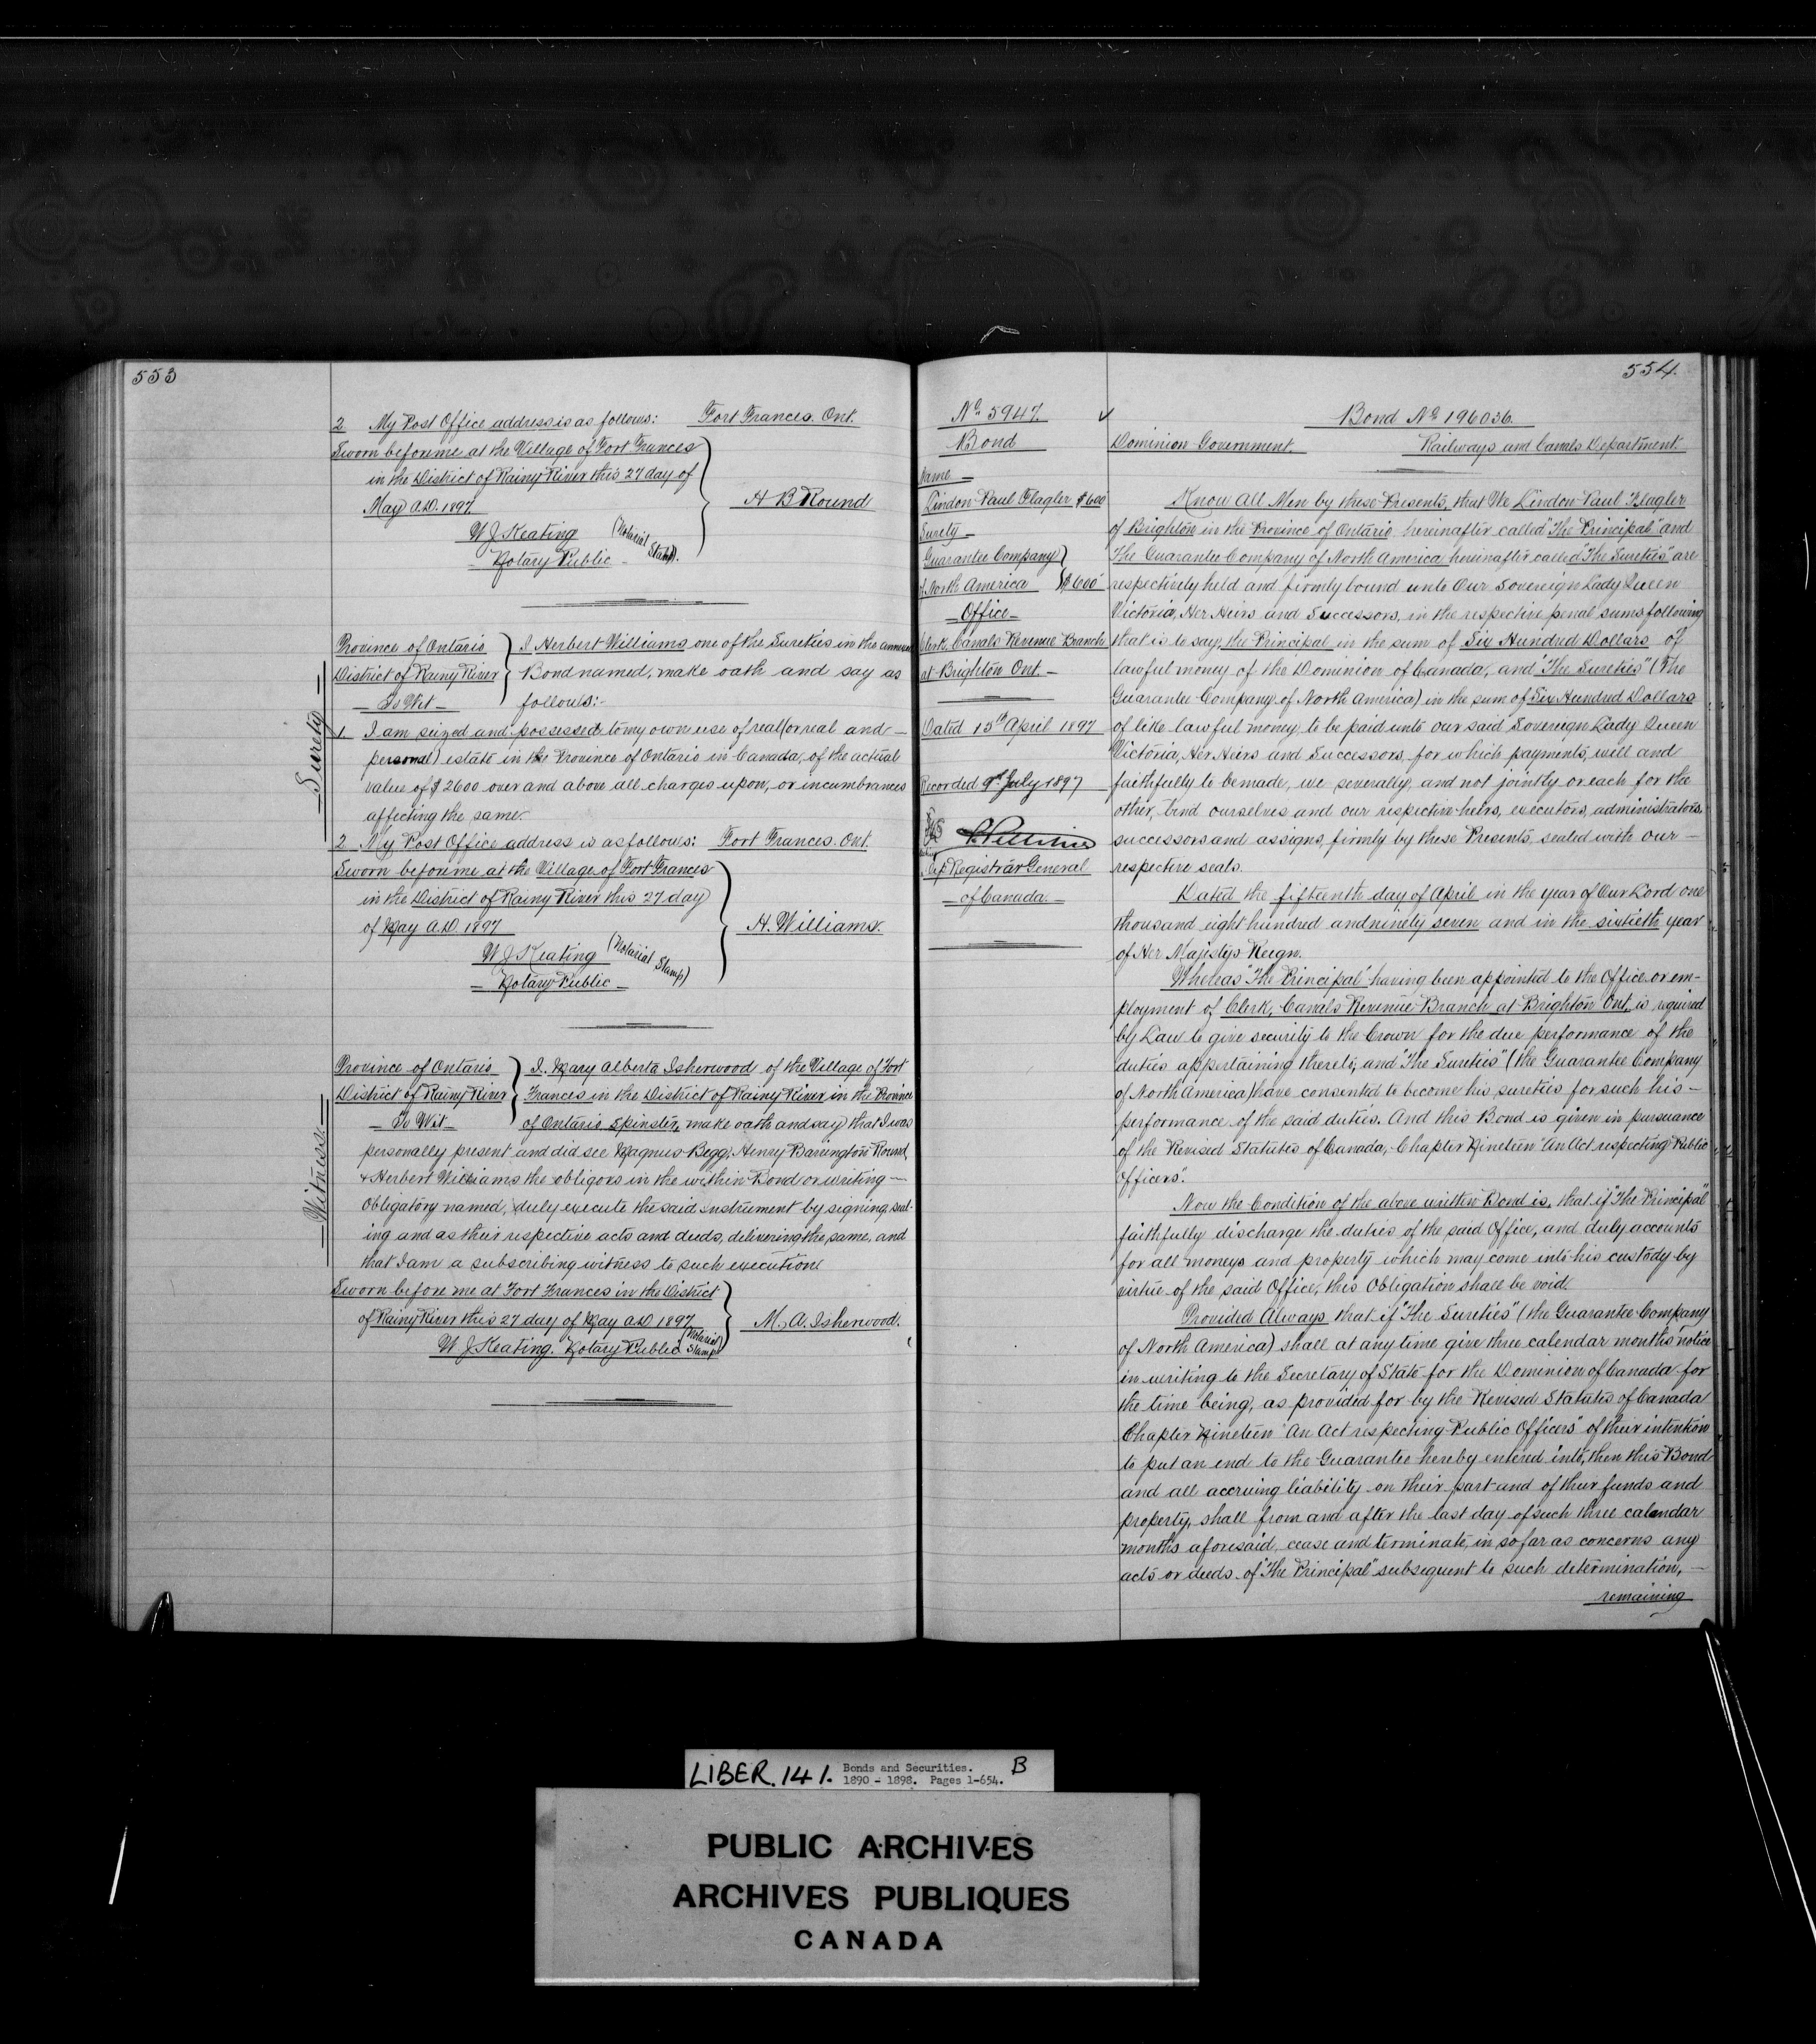 553
2 My Post Office address is as follows: Fort Frances. Ont.
Sworn before me at the Village of Fort Frances
in the District of Rainy River this 27 day of
May A.D. 1897.
H B Round
W J Keating (Notarial Stamp).
Notary Public
Surety
Province of Ontario
District of Rainy River
To Wit
I Herbert Williams one of the Sureties in the annexed
Bond named, make oath and say as
follows:-
1 I am seized and possessed to my own use of real (or real and
personal) estate in the Province of Ontario in Canada, of the actual
value of $2600 over and above all charges upon, or incumbrances
affecting the same.
2 My Post Office address is as follows: Fort Frances. Ont.
Sworn before me at the Village of Fort Frances
in the District of Rainy River this 27 day
of May A.D. 1897
H. Williams.
W J Keating (Notarial Stamp)
Notary Public
Witness
Province of Ontario
District of Rainy River
To Wit
I. Mary Alberta Isherwood of the Village of Fort
Frances in the District of Rainy River in the Province
of Ontario Spinster, make oath and say that I was
personally present and did see Magnus Begg, Henry Barrington Round,
& Herbert Williams the obligors in the within Bond or writing
Obligatory named, duly execute the said instrument by signing, seal-
ing and as their respective acts and deeds, delivering the same, and
that I am a subscribing witness to such execution
Sworn before me at Fort Frances in the District
of Rainy River this 27 day of May A.D. 1897
M. A. Isherwood.
W J Keating. Notary Public (Notarial Stamp)
554.
No. 5947.
Bond
Name
Lindon Paul Flagler $600
Surety
Guarantee Company
of North America $600
Office
Clerk, Canals Revenue Branch
at Brighton Ont.
Dated 15th April 1897
Recorded 9th July 1897
Dep Registrar General
of Canada.
Bond No 196036.
Dominion Government. Railways and Canals Department.
Know All Men by these Presents, that We Lindon Paul Flagler
of Brighton in the Province of Ontario hereinafter called "The Principal" and
The Guarantee Company of North America hereinafter called "The Sureties" are
respectively held and firmly bound unto Our Sovereign Lady Queen
Victoria, Her Heirs and Successors, in the respective penal sums following
that is to say, the Principal in the sum of Six Hundred Dollars of
lawful money of the Dominion of Canada, and "The Sureties" (The
Guarantee Company of North America) in the sum of Six Hundred Dollars
of like lawful money, to be paid unto our said Sovereign Lady Queen
Victoria, Her Heirs and Successors, for which payments, well and
faithfully to be made, we severally, and not jointly or each for the
other, bind ourselves and our respective heirs, executors, administrators,
successors and assigns, firmly by these Presents, sealed with our
respective seals.
Dated the fifteenth day of April in the year of Our Lord one
thousand eight hundred and ninety seven and in the sixtieth year
of Her Majestys Reign.
Whereas "The Principal" having been appointed to the Office or em-
ployment of Clerk, Canals Revenue Branch at Brighton Ont, is required
by Law to give security to the Crown for the due performance of the
duties appertaining thereto; and "The Sureties" (the Guarantee Company
of North America) have consented to become his sureties for such his
performance of the said duties. And this Bond is given in pursuance
of the Revised Statutes of Canada, Chapter Nineteen "An Act respecting Public
Officers".
Now the Condition of the above written Bond is, that if "The Principal"
faithfully discharge the duties of the said Office, and duly accounts
for all moneys and property which may come into his custody by
virtue of the said Office, this Obligation shall be void.
Provided Always that if "The Sureties" (the Guarantee Company
of North America) shall at any time give three calendar months notice
in writing to the Secretary of State for the Dominion of Canada for
the time being, as provided for by the Revised Statutes of Canada
Chapter Nineteen "An Act respecting Public Officers" of their intention
to put an end to the Guarantee hereby entered into, then this Bond
and all accruing liability on their part and of their funds and
property, shall from and after the last day of such three calendar
months aforesaid, cease and terminate, in so far as concerns any
acts or deeds of "The Principal" subsequent to such determination,
remaining
LIBER. 141. Bonds and Securities. B
1890 - 1898. Pages 1-654.
PUBLIC ARCHIVES
ARCHIVES PUBLIQUES
CANADA